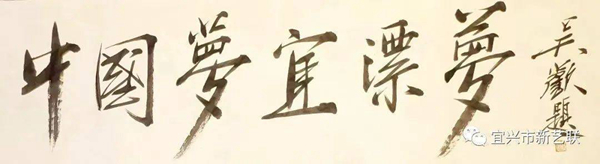 中國夢宜漂夢
吴歡題
宜兴市新艺联